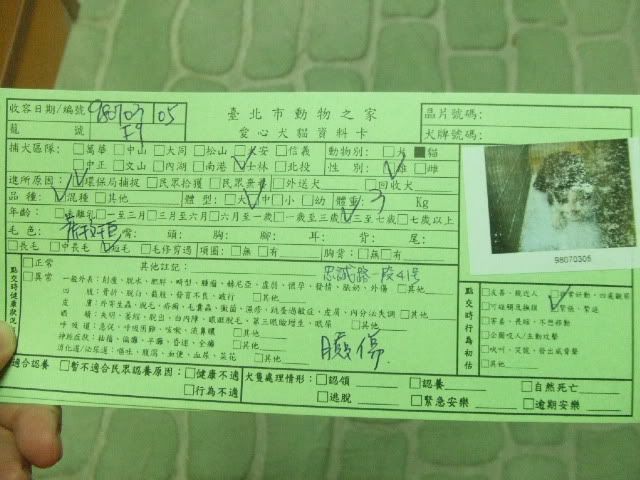 收容日期/編號 980703/05 臺北市動物之家 晶片號碼:
籠號 E9 愛心犬貓資料卡 犬牌號碼:
捕犬區隊: □萬華 □中山 □大同 □松山 □大安 □信義 動物別: □犬 ■貓
□中正 □文山 □內湖 □南港 ☑士林 □北投 性別: ☑雄 □雌
進所原因: ☑環保局捕捉 □民眾拾獲 □民眾棄養 □外送犬 □回收犬
品種: ☑混種 □其他 體型: □大 ☑中 □小 □幼 體重: 3 Kg
年齡: □離乳 □一至三月 □三月至六月 □六月至一歲 □一歲至三歲 ☑三至七歲 □七歲以上
毛色: 嘴: 頭: 腳: 耳: 背: 尾:
□長毛 □中長毛 ☑短毛 □毛修剪過 項圈: □無 □有 胸背: □無 □有
98070305
點交時健康狀況
□正常 其他註記: 忠誠路 段41號
□異常
一般外表: 削瘦、脫水、肥胖、畸型、腫瘤、赫尼亞、虛弱、懷孕、發情、脹奶、外傷 □其他
四肢: 骨折、脫臼、截肢、發育不良、跛行 □其他
皮膚: 外寄生蟲、脫毛、疥癬、毛囊蟲、黴菌、濕疹、跳蚤過敏症、皮屑、內分泌失調 □其他
眼睛: 失明、萎縮、脫出、白內障、眼眶脫毛、第三眼瞼增生、眼屎 □其他
呼吸道: 急促、呼吸困難、咳嗽、流鼻膿 □其他
神經症狀: 扭頭、偏癱、半癱、昏迷、全癱 □其他
消化道/泌尿道: 嘔吐、腹瀉、血便、血尿、菜花 □其他
臉傷
點交時行為初估
□友善、親近人
☑緊張、緊迫
□可碰觸及撫摸
□害羞、畏縮、不想移動
□企圖咬人/主動攻擊
□吠叫、哭號、發出威脅聲
□其他
適合認養 □暫不適合民眾認養原因: □健康不適 犬隻處理情形: □認領 □認養 □自然死亡
□行為不適 □逃脫 □緊急安樂 □逾期安樂